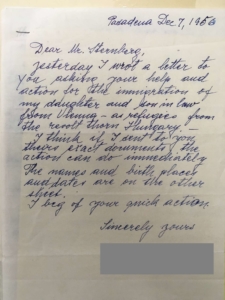 Pasadena Dec 7, 1956
Dear Mr. Sternberg,
Yesterday I wrot a letter to
you asking your help and
action for the immigration of
my daughter and son in law
from Vienna - as refugees from
the revolt thorn Hungary. -
I think if I sent to you
theirs exact documents, the
action can do immediately.
The names and birth places
and dates are on the other
sheet.
I beg of your quick action.
Sincerely yours